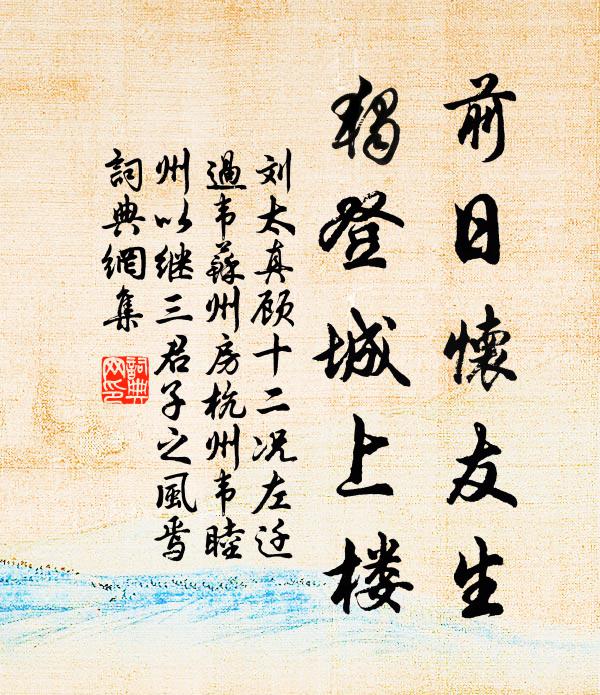 前日懷友生
獨登城上楼
刘太真顾十二况左迁
過韦蘇州房杭州韦睦
州以继三君子之風焉
詞典網集
詞典